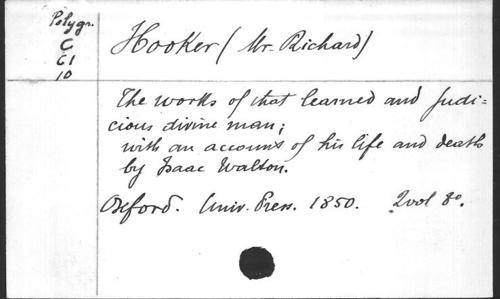 Polygr.
C
C1
10
Hooker (Mr. Richard)
The works of that learned and Judi=
cious divine man;
with an account of his life and death
by Isaac Walton.
Oxford. Univ. Press. 1850. 2 vol 8o.